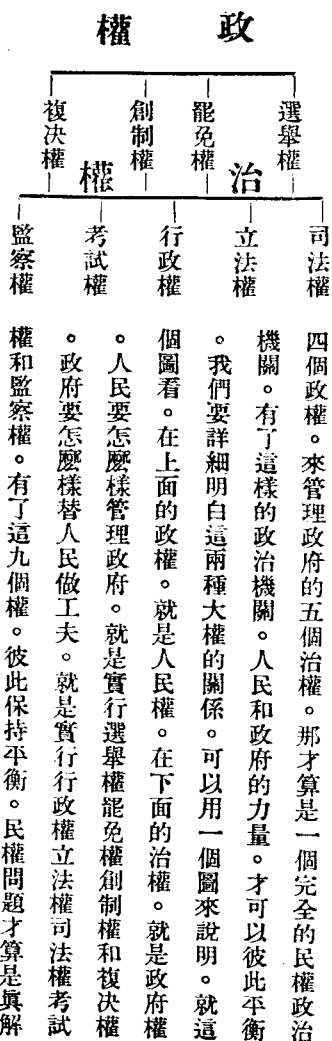 政權
選舉權
罷免權
創制權
複決權
治權
司法權
立法權
行政權
考試權
監察權
四個政權。來管理政府的五個治權。那才算是一個完全的民權政治
機關。有了這樣的政治機關。人民和政府的力量。才可以彼此平衡
。我們要詳細明白這兩種大權的關係。可以用一個圖來說明。就這
個圖看。在上面的政權。就是人民權。在下面的治權。就是政府權
。人民要怎麽樣管理政府。就是實行選舉權罷免權創制權和複決權
。政府要怎麽樣替人民做工夫。就是實行行政權立法權司法權考試
權和監察權。有了這九個權。彼此保持平衡。民權問題才算是眞解